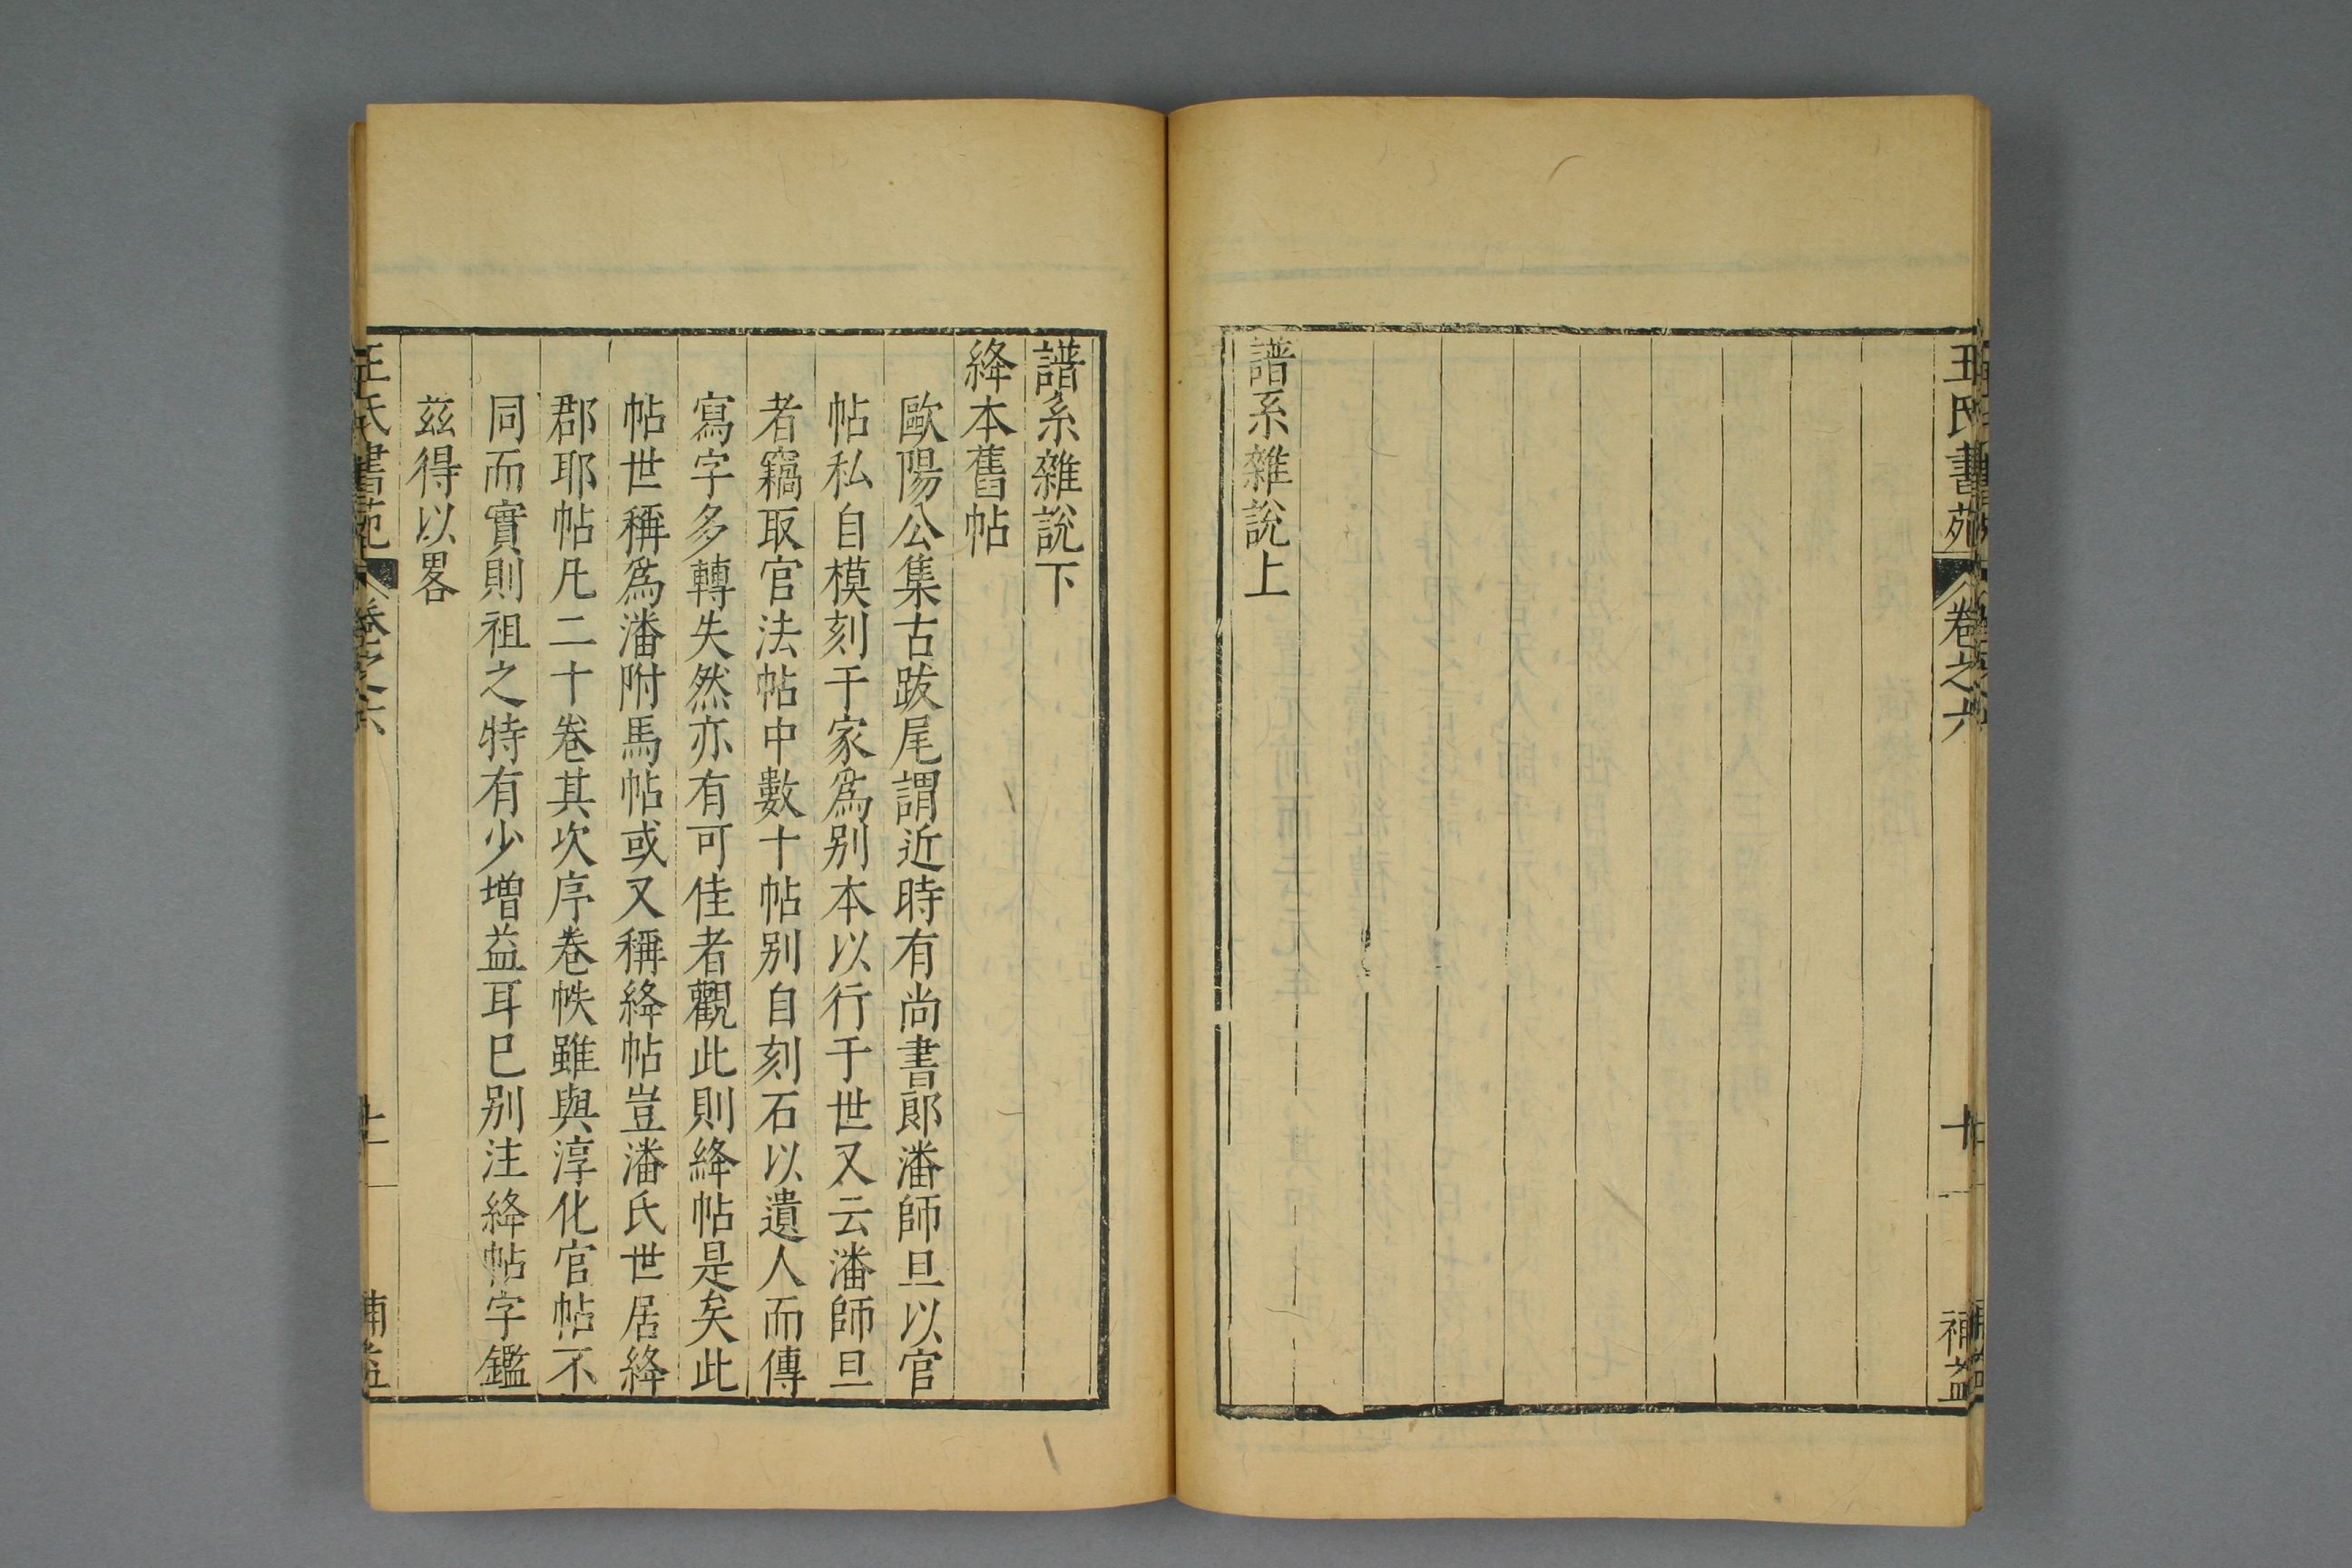 王氏書苑 卷之六 十 補益
譜系雜說上
譜系雜說下
絳本舊帖
歐陽公集古跋尾謂近時有尚書郎潘師旦以官
帖私自模刻于家爲别本以行于世又云潘師旦
者竊取官法帖中數十帖别自刻石以遺人而傳
寫字多轉失然亦有可佳者觀此則絳帖是矣此
帖世稱爲潘附馬帖或又稱絳帖豈潘氏世居絳
郡耶帖凡二十卷其次序卷帙雖與淳化官帖不
同而實則祖之特有少增益耳已别注絳帖字鑑
茲得以畧
王氏書苑 卷之六 十一 補益